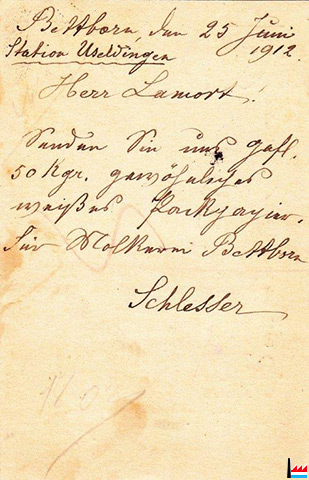 Bettborn, den 25 Juni
Station Useldingen 1912.
Herr Lamort!
Senden Sie uns gefl.
50 Kgr. gewöhnliches
weißes Packpapier.
Für Molkerei Bettborn
Schlesser